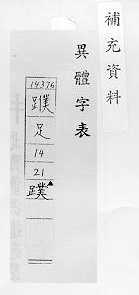 補充資料
異體字表
14376
蹼
足
14
21
蹼